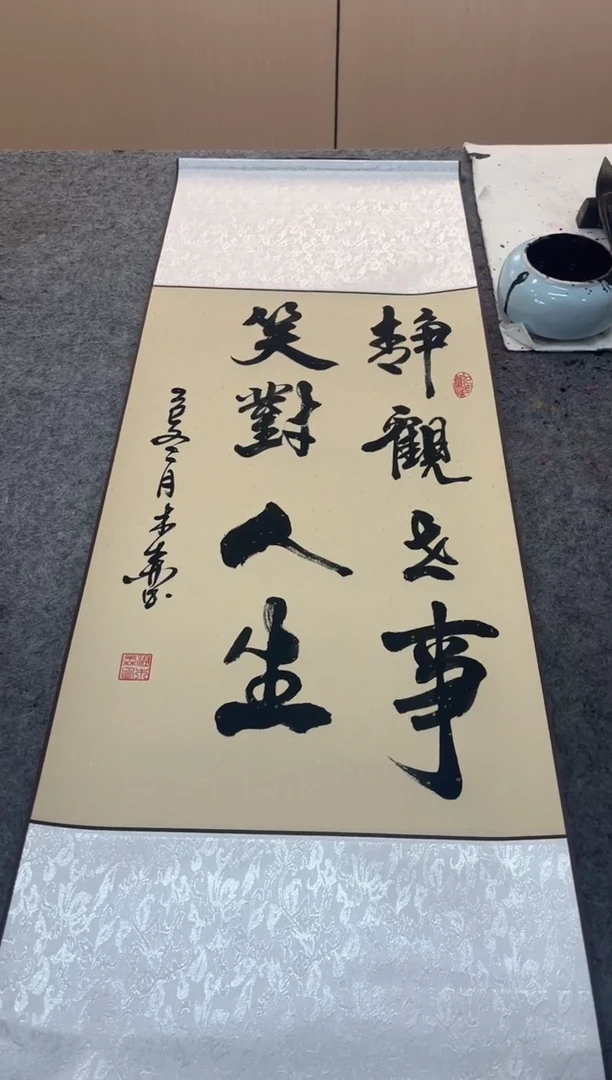 靜觀世事
笑對人生
二月